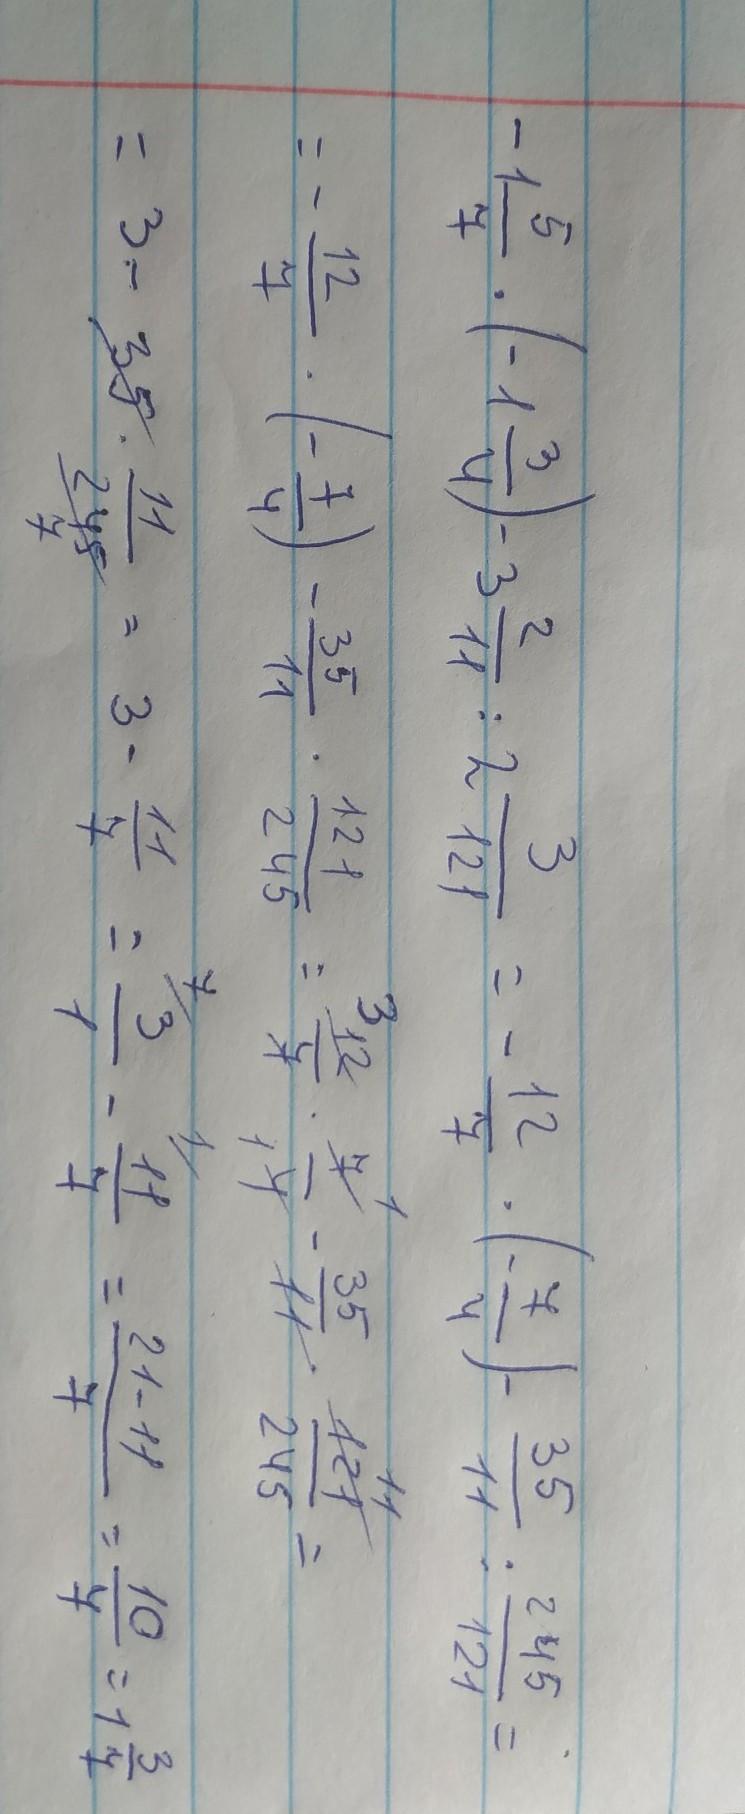 -1 5/7 · (-1 3/4) - 3 2/11 : 2 3/121 = - 12/7 · (- 7/4) - 35/11 : 245/121 =
= - 12/7 · (- 7/4) - 35/11 · 121/245 = 3 12/7 · 7 1/1 4 - 35/11 · 121 11/245 =
= 3 - 35 · 11/245 7 = 3 - 11/7 = 3 7/1 - 11 1/7 = 21-11/7 = 10/7 = 1 3/7